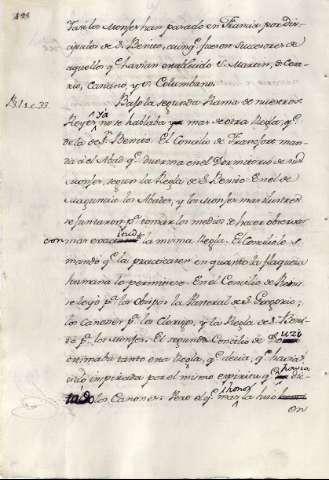 198
Tales los Monjes han parado en Francia por Dis-
cipulos de S. Benito, aunq.e fuesen Successores de
aquellos q.e havian establecido S. Martin, S. Cesa-
rio, Casiano, y S. Columbano.
Bajo la segunda Rama de nuestros
Reyes, ya no se hablaba mas de otra Regla, q.e
de la de S. Benito. El Concilio de Francfort man-
da à el Abad q.e duerma en el Dormitorio de sus
Monjes, segun la Regla de S. Benito. En el de
Maguncia los Abades, y los Monjes mas ilustres
se juntaron p.a tomar los medios de hacer observar
con mas exactitud la misma Regla. El Concilio les
mandò q.e la practicasen en quanto la flaqueza
humana lo permitiese. En el Concilio de Rems
se leyò p.a los Obispos la Pastoral de S. Gregorio;
los Canones p.a los Clerigos, y la Regla de S. Beni-
to p.a los Monjes. El segundo Concilio de Douzi
estimaba tanto esta Regla, q.e decia, q.e havia
sido inspirada por el mismo espiritu q.e havia dic-
tado los Canones. Pero el q.e mas honor la hizo
en